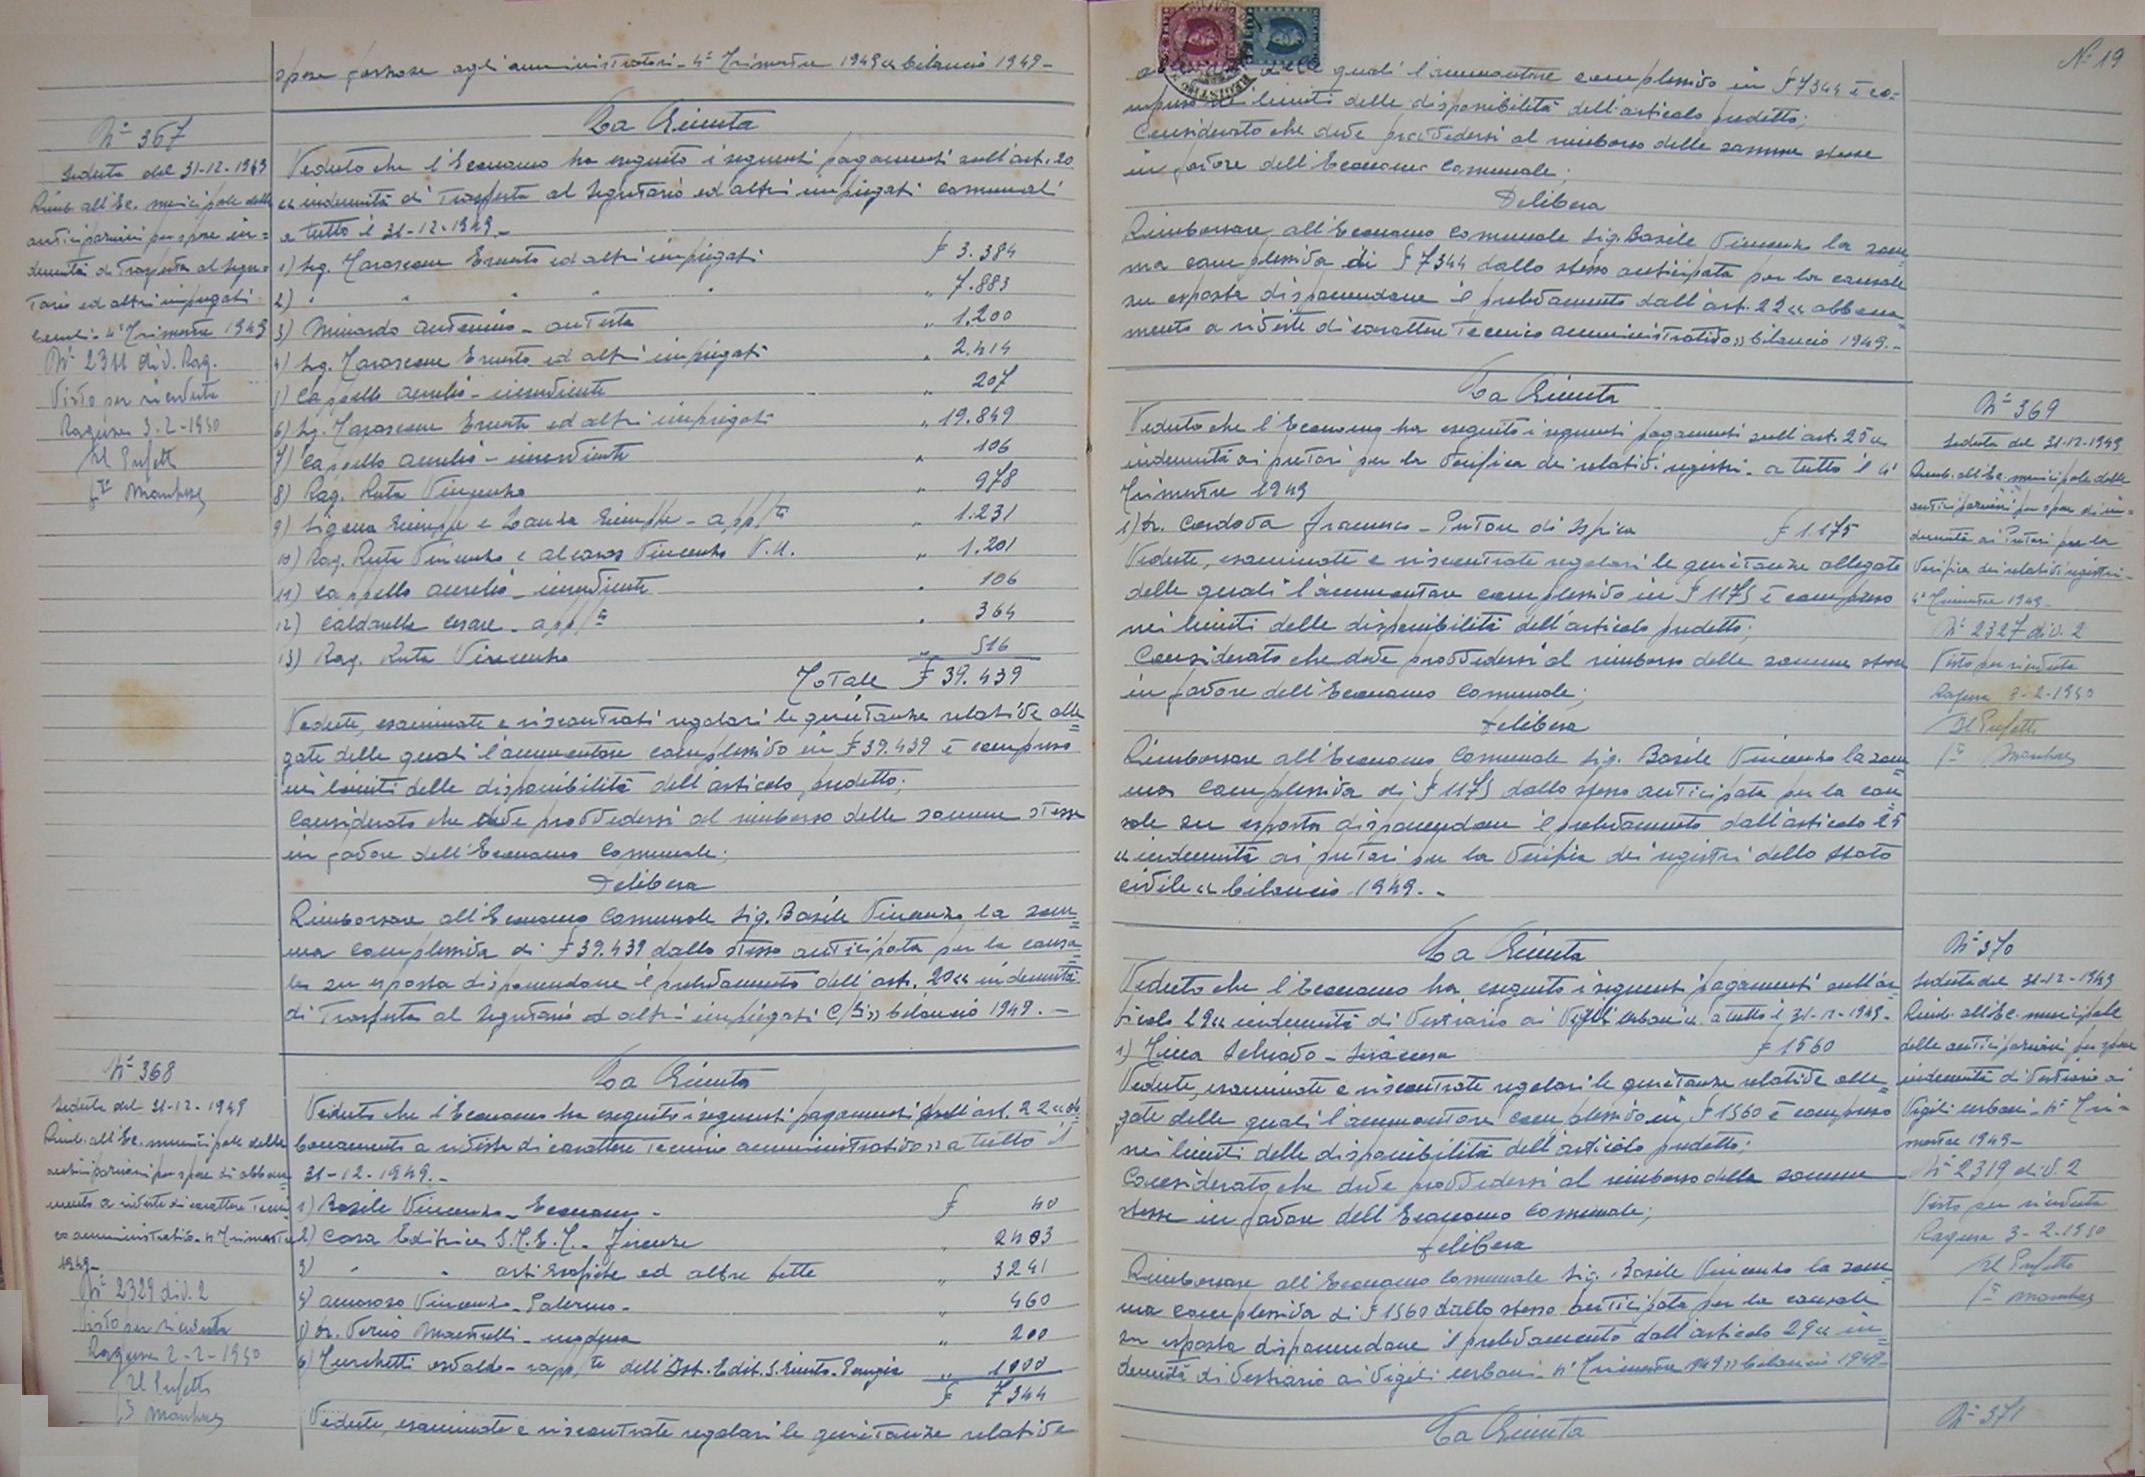 spese forzose agli amministratori - 4° Trimestre 1949 « bilancio 1949 -
N° 367
Seduta del 31-12-1949
Rimb. all'Ec. municipale delle
anticipazioni per spese in=
dennità di Trasferta al Segre=
tario ed altri impiegati
Com/li - 4° Trimestre 1949
N° 2311 div. Rag.
Visto per ricevuta
Ragusa 3-2-1950
Il Prefetto
La Giunta
Veduto che l'Economo ha eseguito i seguenti pagamenti sull'art. 20
« indennità di Trasferta al Segretario ed altri impiegati comunali
a tutto il 31-12-1949.-
1) Sig. Ernesto ed altri impiegati £ 3.384
2) " " " " " " 7.883
3) Minardo Antonio - autista " 1.200
4) Sig. Ernesto ed altri impiegati " 2.414
5) Cappello Aurelio - inserviente " 207
6) Sig. Ernesto ed altri impiegati " 19.849
7) Cappello Aurelio - inserviente " 106
8) Rag. Ruta Vincenzo " 978
9) Sigona Giuseppe e Lauza Giuseppe - app/ti " 1.231
10) Rag. Ruta Vincenzo e Vincenzo V.U. " 1.201
11) Cappello Aurelio - inserviente " 106
12) Caldarella Cesare - app/to " 364
13) Rag. Ruta Vincenzo " 516
Totale £ 39.439
Vedute, esaminate e riscontrati regolari le quietanze relative alle=
gate delle quali l'ammontare complessivo in £ 39.439 è compreso
nei limiti delle disponibilità dell'articolo predetto;
Considerato che deve provvedersi al rimborso delle somme stesse
in favore dell'Economo Comunale;
Delibera
Rimborsare all'Economo Comunale Sig. Basile Vincenzo la som=
ma complessiva di £ 39.439 dallo stesso anticipata per la causa=
le su esposta disponendone il prelevamento dall'art. 20 « indennità
di Trasferta al Segretario ed altri impiegati C/li » bilancio 1949. -
N° 368
Seduta del 31-12-1949
Rimb. all'Ec. municipale delle
anticipazioni per spese di abbona=
mento a riviste di carattere Tecni=
co amministrativo - 4° Trimestre
1949-
N° 2329 div. 2
Visto per ricevuta
Ragusa 2-2-1950
Il Prefetto
La Giunta
Veduto che l'Economo ha eseguito i seguenti pagamenti sull'art. 22 « ab=
bonamento a riviste di carattere Tecnico amministrativo » a tutto il
31-12-1949.-
1) Basile Vincenzo - Economo - £ 40
2) Casa Editrice S.T.E.T. - Firenze " 2403
3) " " arti grafiche ed altre ditte " 3241
4) Amoroso Vincenzo - Palermo - " 460
5) Dr. Verio - Modena " 200
6) Turchetti Osvaldo - rapp/te dell'Ist. Edit. - Perugia " 1000
£ 7344
Vedute, esaminate e riscontrate regolari le quietanze relative
N° 19
delle quali l'ammontare complessivo in £ 7344 è co=
mpreso nei limiti delle disponibilità dell'articolo predetto;
Considerato che deve provvedersi al rimborso delle somme stesse
in favore dell'Economo Comunale;
Delibera
Rimborsare all'Economo Comunale Sig. Basile Vincenzo la som=
ma complessiva di £ 7344 dallo stesso anticipata per la causale
su esposta disponendone il prelevamento dall'art. 22 « abbona=
mento a riviste di carattere Tecnico amministrativo » bilancio 1949.-
La Giunta
Veduto che l'Economo ha eseguito i seguenti pagamenti sull'art. 25 «
indennità ai pretori per la verifica dei relativi registri - a tutto il 4°
Trimestre 1949
1) Dr. Cordova Francesco - Pretore di Ispica £ 1.175
Vedute, esaminate e riscontrate regolari le quietanze allegate
delle quali l'ammontare complessivo in £ 1175 è compreso
nei limiti delle disponibilità dell'articolo predetto;
Considerato che deve provvedersi al rimborso delle somme stesse
in favore dell'Economo Comunale;
Delibera
Rimborsare all'Economo Comunale Sig. Basile Vincenzo la som=
ma complessiva di £ 1175 dallo stesso anticipata per la cau=
sale su esposta disponendone il prelevamento dall'articolo 25
« indennità ai pretori per la verifica dei registri dello Stato
civile « bilancio 1949. -
N° 369
Seduta del 31-12-1949
Rimb. all'Ec. municipale delle
anticipazioni per spese di in=
dennità ai Pretori per la
verifica dei relativi registri -
4° Trimestre 1949-
N° 2327 div. 2
Visto per ricevuta
Ragusa 3-2-1950
Il Prefetto
La Giunta
Veduto che l'Economo ha eseguito i seguenti pagamenti sull'ar=
ticolo 29 « indennità di Vestiario ai Vigili urbani « a tutto il 31-12-1949.
1) - Siracusa £ 1560
Vedute, esaminate e riscontrate regolari le quietanze relative alle=
gate delle quali l'ammontare complessivo in £ 1560 è compreso
nei limiti delle disponibilità dell'articolo predetto;
Considerato che deve provvedersi al rimborso delle somme
stesse in favore dell'Economo Comunale;
Delibera
Rimborsare all'Economo Comunale Sig. Basile Vincenzo la som=
ma complessiva di £ 1560 dallo stesso anticipata per la causale
su esposta disponendone il prelevamento dall'articolo 29 « in=
dennità di Vestiario ai Vigili urbani - 4° Trimestre 1949 » bilancio 1949-
N° 370
Seduta del 31-12-1949
Rimb. all'Ec. municipale
delle anticipazioni per spese
indennità di Vestiario ai
Vigili urbani - 4° Tri=
mestre 1949-
N° 2319 div. 2
Visto per ricevuta
Ragusa 3-2-1950
Il Prefetto
La Giunta
N° 371